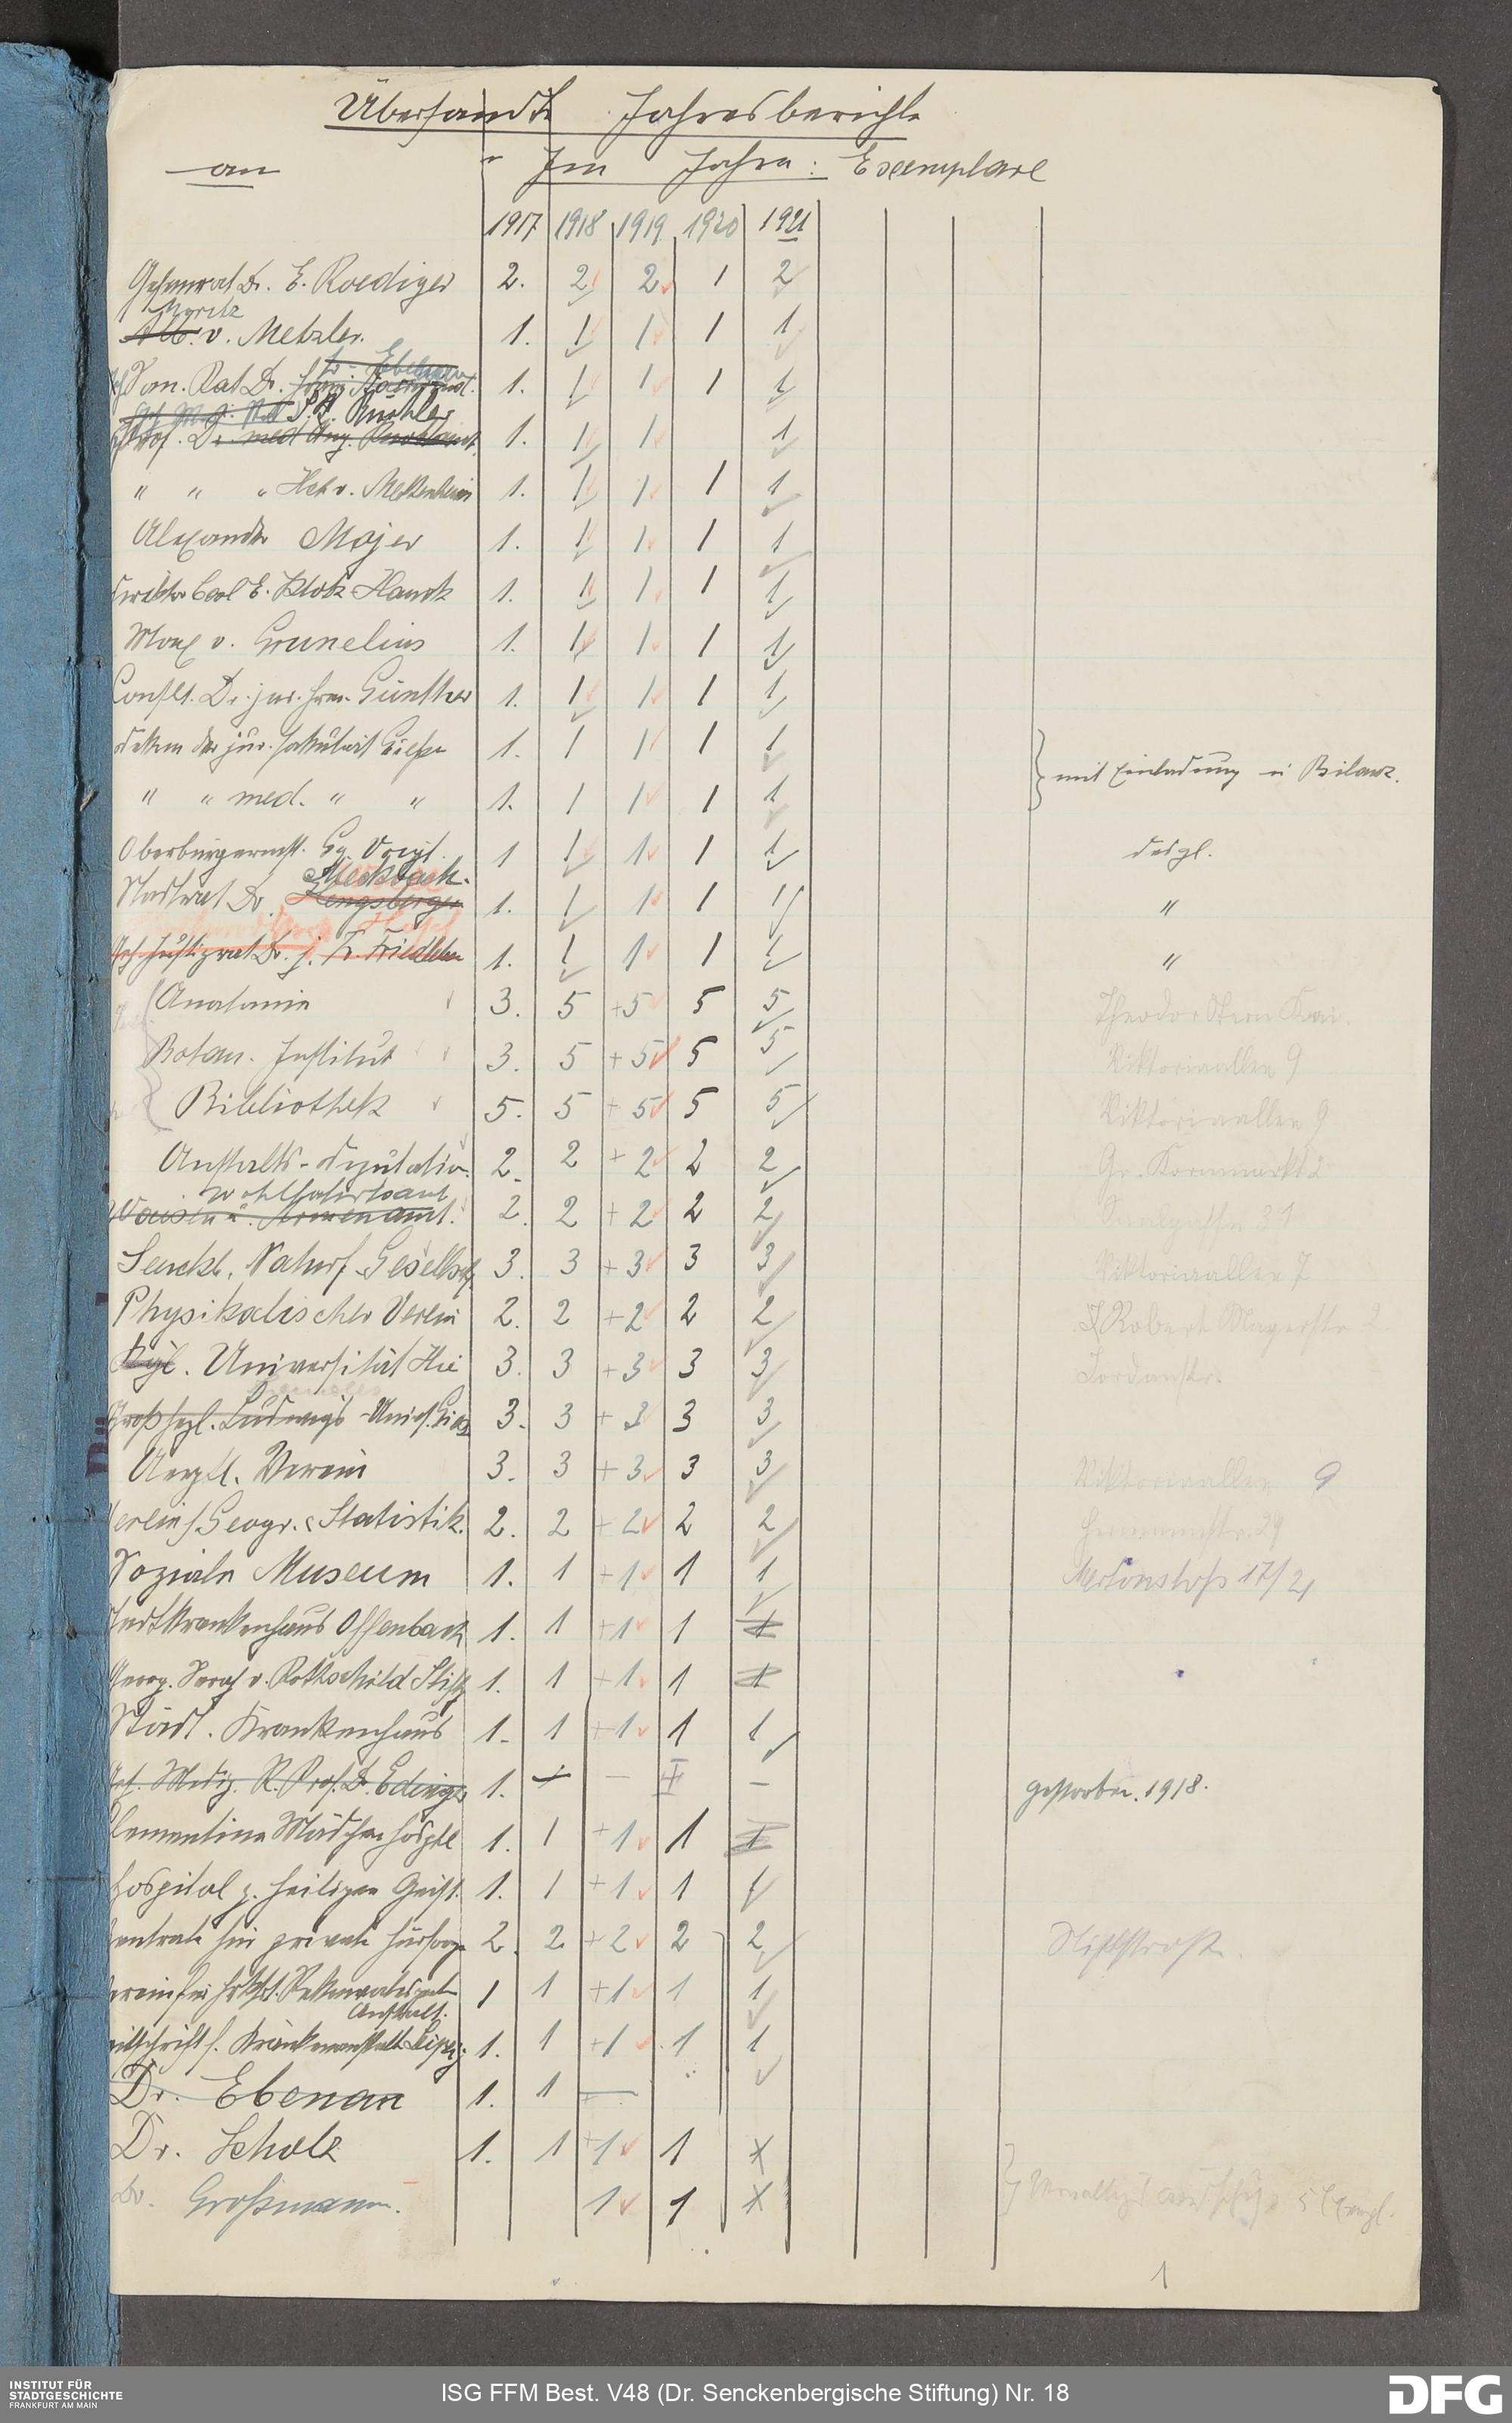 Übersandte Jahresberichte
an Im Jahre: Exemplare
1917 1918 1919 1920 1921
Geheimrat Dr. E. Roediger 2. 2 2 1 2
Moritz
Alb. v. Metzler. 1. 1 1 1 1
Dr. Ebenau
San. Rat Dr. 1. 1 1 1 1
Prof. Dr. med Aug. 1. 1 1 1
" " " v. Mettenheim 1. 1 1 1 1
Alexander Majer 1. 1 1 1 1
Direktor Carl E. Klotz-Hauck 1. 1 1 1 1
Max v. Grunelius 1. 1 1 1 1
Konsist. Dr. jur. Günther 1. 1 1 1 1
Dekan der jur. Fakultät Gießen 1. 1 1 1 1
mit Einladung u Bilanz.
" " med. " " 1. 1 1 1 1
Oberbürgermst. Gg. Voigt. 1 1 1 1 1 desgl.
Meckbach.
Stadtrat Dr. Hengsberger 1. 1 1 1 1 "
Geh Justizrat Dr. j. Fr. Friedleben 1. 1 1 1 1 "
Anatomie 3. 5 +5 5 5 Theodor Stern Kai.
Botan. Institut 3. 5 +5 5 5 Viktoriaallee 9
Bibliothek 5. 5 +5 5 5 Viktoriaallee 9
Anstalts-Deputation 2. 2 +2 2 2 Gr. Kornmarkt 2
Wohlfahrtsamt
Waisen u. Armenamt. 2. 2 +2 2 2
Senckb. Naturf. Gesellsch 3. 3 +3 3 3 Viktoriaallee 7
Physikalischer Verein 2. 2 +2 2 2 Robert Mayerstr 2
Kgl. Universität Hie 3. 3 +3 3 3 Jordanstr.
Großhzgl. Ludwigs-Univ. Giess 3. 3 +3 3 3
Aerztl. Verein 3. 3 +3 3 3 Viktoriaallee 9
Verein f. Geogr. u Statistik. 2. 2 +2 2 2
Soziale Museum 1. 1 +1 1 1 17/21
Stadtkrankenhaus Offenbach 1. 1 +1 1 1
Georg. Sara v. Rothschild Stiftg 1. 1 +1 1 1
Städt. Krankenhaus 1. 1 +1 1 1
Geh. Mediz. R. Prof. Dr. Edinger 1. + — — gestorben. 1918.
Clementine Mädchen hospital 1. 1 +1 1 1
Hospital z. heiligen Geist. 1. 1 +1 1 1
Zentrale für private Fürsorge 2. 2 +2 2 2 Stiftstraße.
Verein für 1 1 +1 1 1
Anstalt.
Zeitschrift f. Krankenanstalt. Leipzig 1. 1 +1 1 1
Dr. Ebenau 1. 1 —
Dr. Scholz 1. 1 +1 1 X
Dr. Großmann. 1 1 X
1
INSTITUT FÜR
STADTGESCHICHTE
FRANKFURT AM MAIN
ISG FFM Best. V48 (Dr. Senckenbergische Stiftung) Nr. 18
DFG